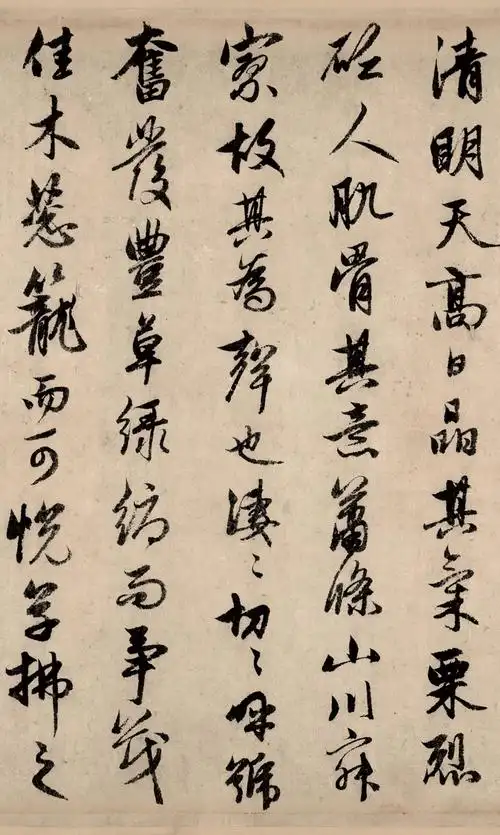 清明天高日晶其氣栗烈
砭人肌骨其意蕭條山川寂
寥故其為聲也淒〻切〻呼號
奮發豐草綠縟而爭茂
佳木蔥籠而可悅草拂之